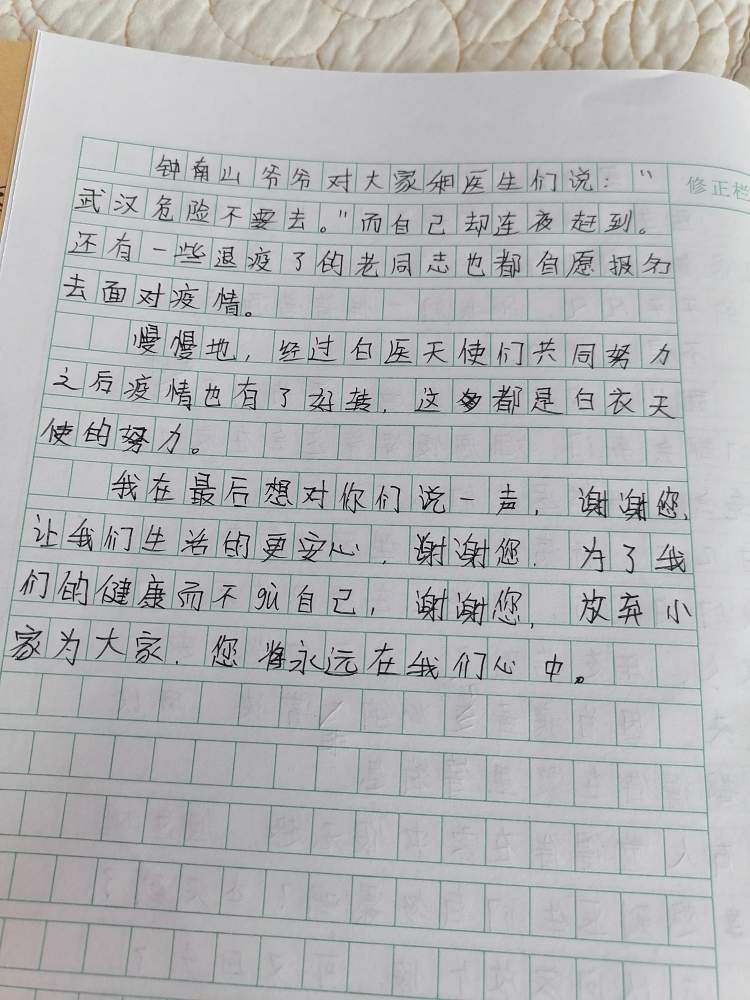 钟南山爷爷对大家和医生们说："
修正栏
武汉危险不要去。"而自己却连夜赶到。
还有一些退疫了的老同志也都自愿报名
去面对疫情。
慢慢地，经过白医天使们共同努力
之后疫情也有了好转，这都是白衣天
使的努力。
我在最后想对你们说一声，谢谢您，
让我们生活的更安心，谢谢您，为了我
们的健康而不gù自己，谢谢您，放弃小
家为大家，您将永远在我们心中。